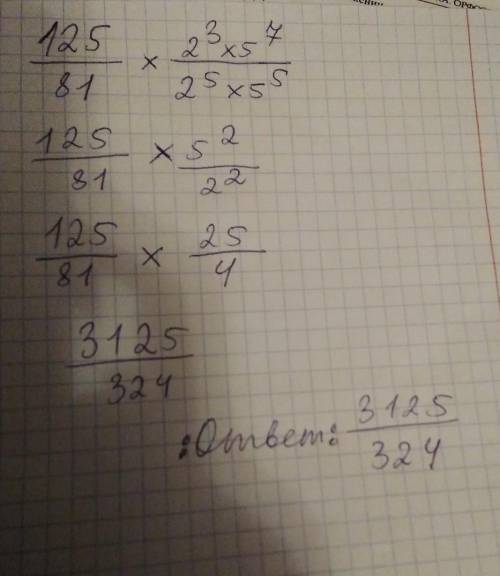 125/81 × 2³×5⁷/2⁵×5⁵
125/81 × 5²/2²
125/81 × 25/4
3125/324
:Ответ: 3125/324